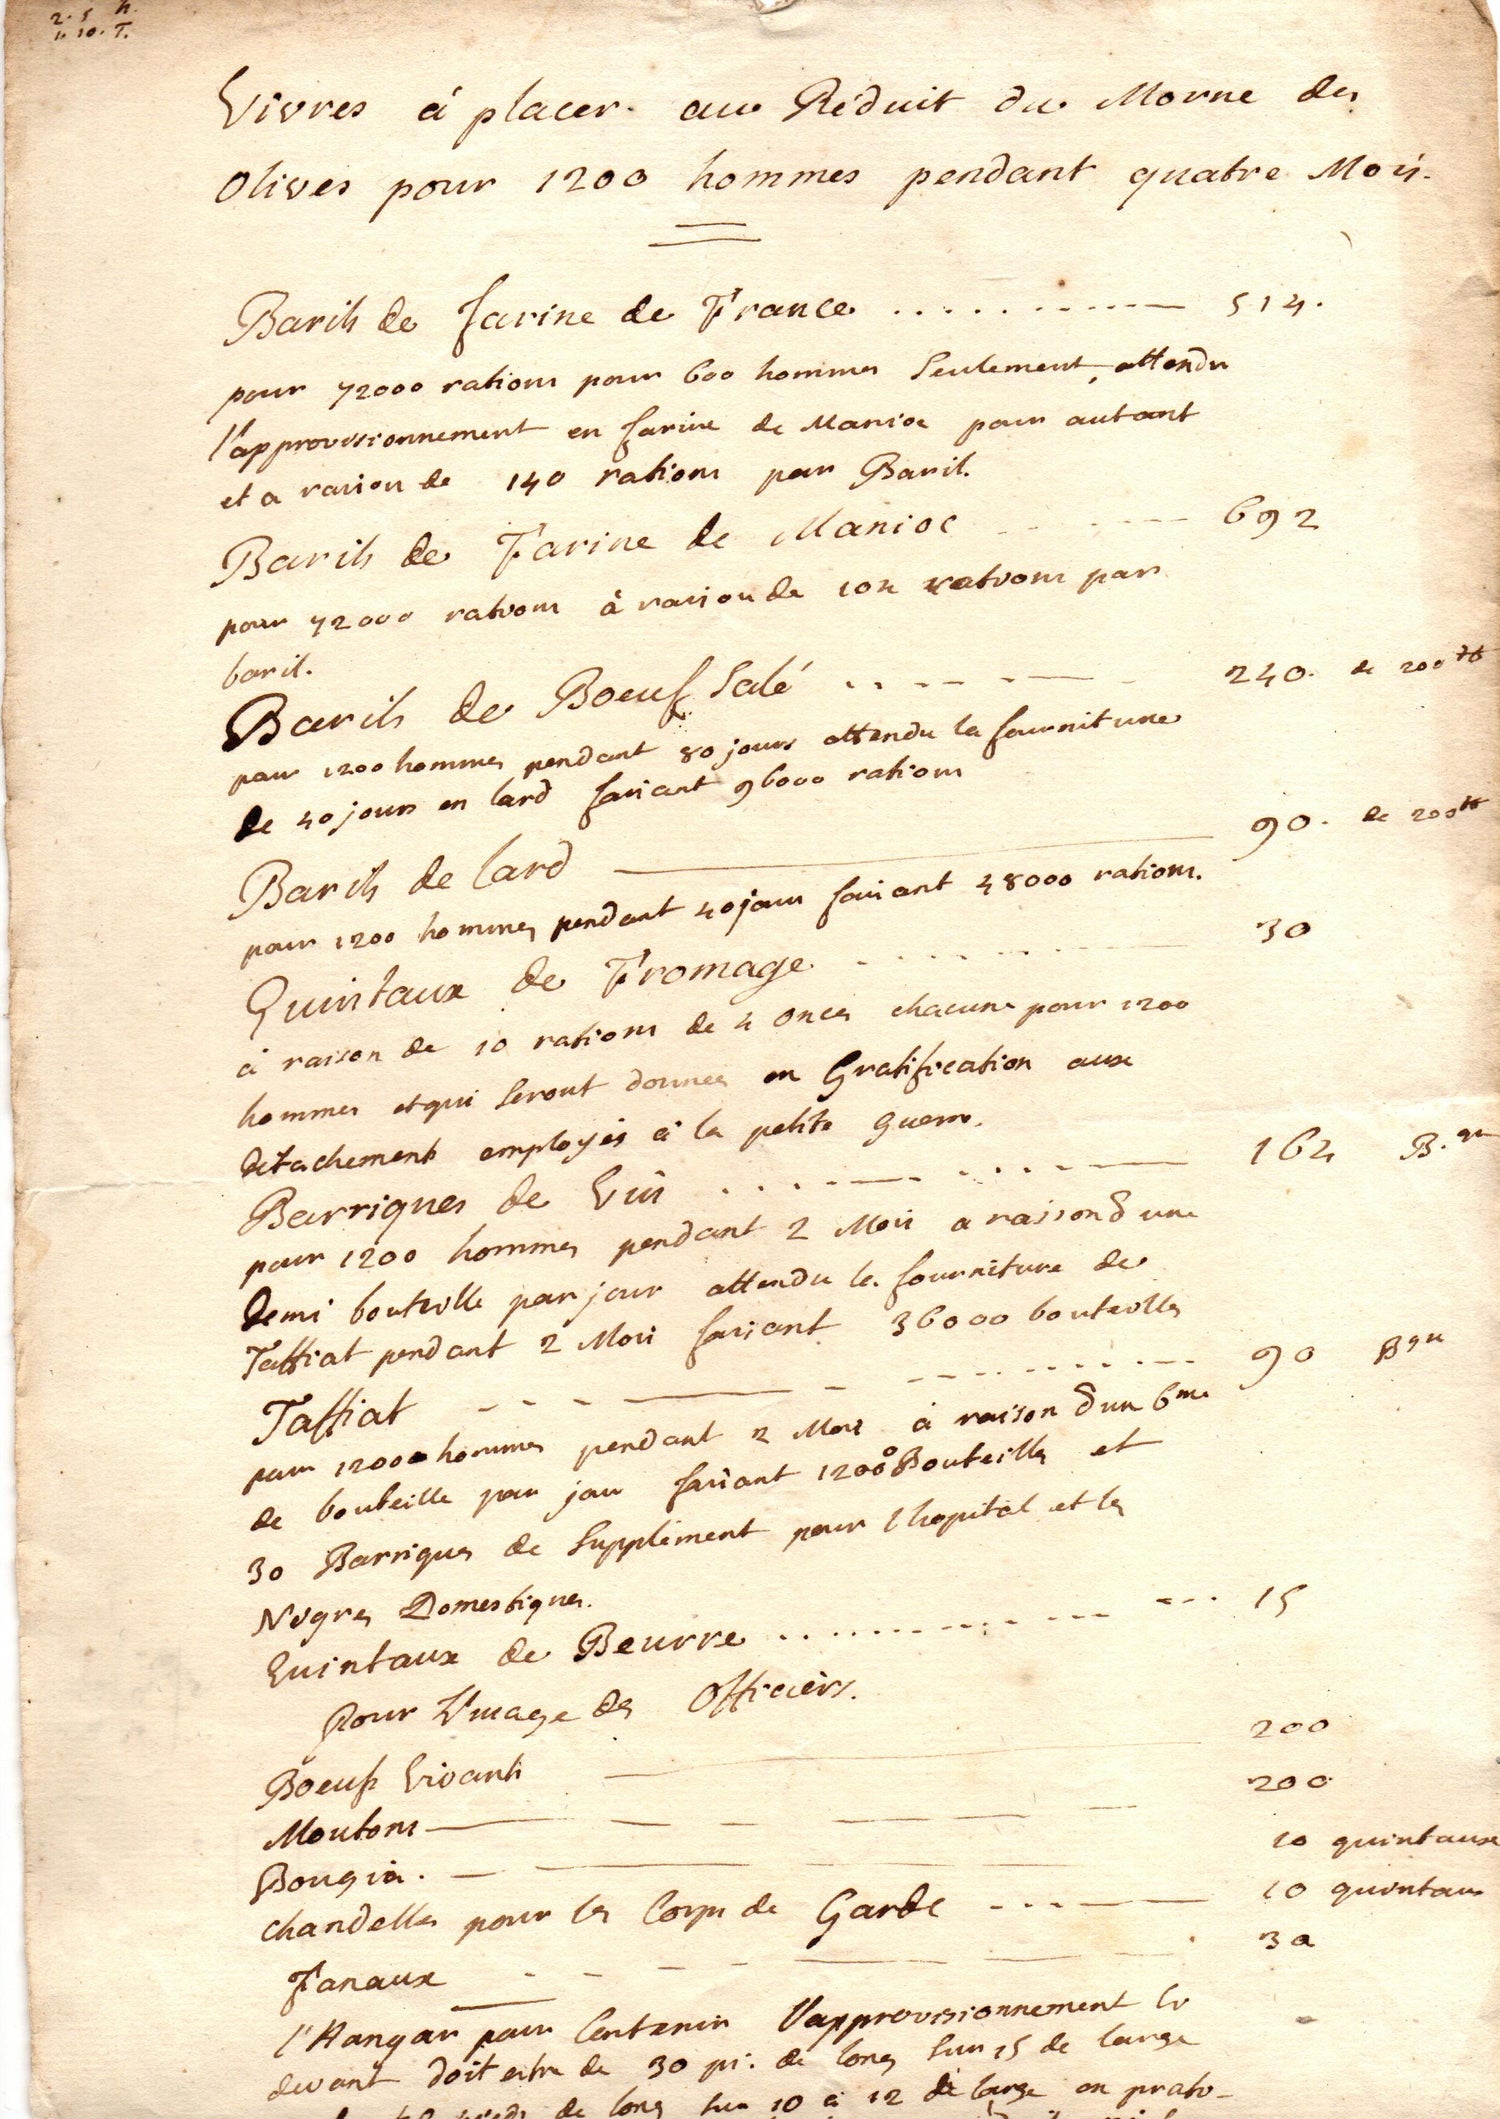 2. 5 h.
1. 10. T.
Vivres à placer au Réduit du Morne des
Olives pour 1200 hommes pendant quatre Mois.
Barils de farine de France 514.
pour 72000 rations pour 600 hommes seulement, attendu
l'approvisionnement en farine de Manioc pour autant
et a raison de 140 rations par Baril.
Barils de Farine de Manioc 692
pour 72000 rations à raison de 104 rations par
baril.
Barils de Boeuf Salé 240. de 200 lb
pour 1200 hommes pendant 80 jours attendu la fourniture
de 40 jours en lard faisant 96000 rations
Barils de lard 90. de 200 lb
pour 1200 hommes pendant 40 jours faisant 48000 rations.
Quintaux de Fromage 30
à raison de 10 rations de 4 onces chacune pour 1200
hommes et qui seront données en Gratification aux
détachements employés à la petite guerre.
Barriques de Vin 164 B.ques
pour 1200 hommes pendant 2 Mois a raison d'une
demi bouteille par jour attendu la fourniture de
Taffiat pendant 2 Mois faisant 36000 bouteilles
Taffiat 90 Bques
pour 1200 hommes pendant 2 Mois à raison d'un 6me
de bouteille par jour faisant 12000 Bouteilles et
30 Barriques de Supplément pour l'hopital et les
Negres Domestiques.
Quintaux de Beurre 15
Pour l'usage des Officiers.
Boeufs Vivants 200
Moutons 200
Bougies. 10 quintaux
chandelles pour les Corps de Garde 10 quintaux
Fanaux 30
l'Hangar pour Contenir l'approvisionnement Ci
devant doit etre de 30 pi. de long sur 15 de large
pieds de long sur 10 à 12 de large en prato-